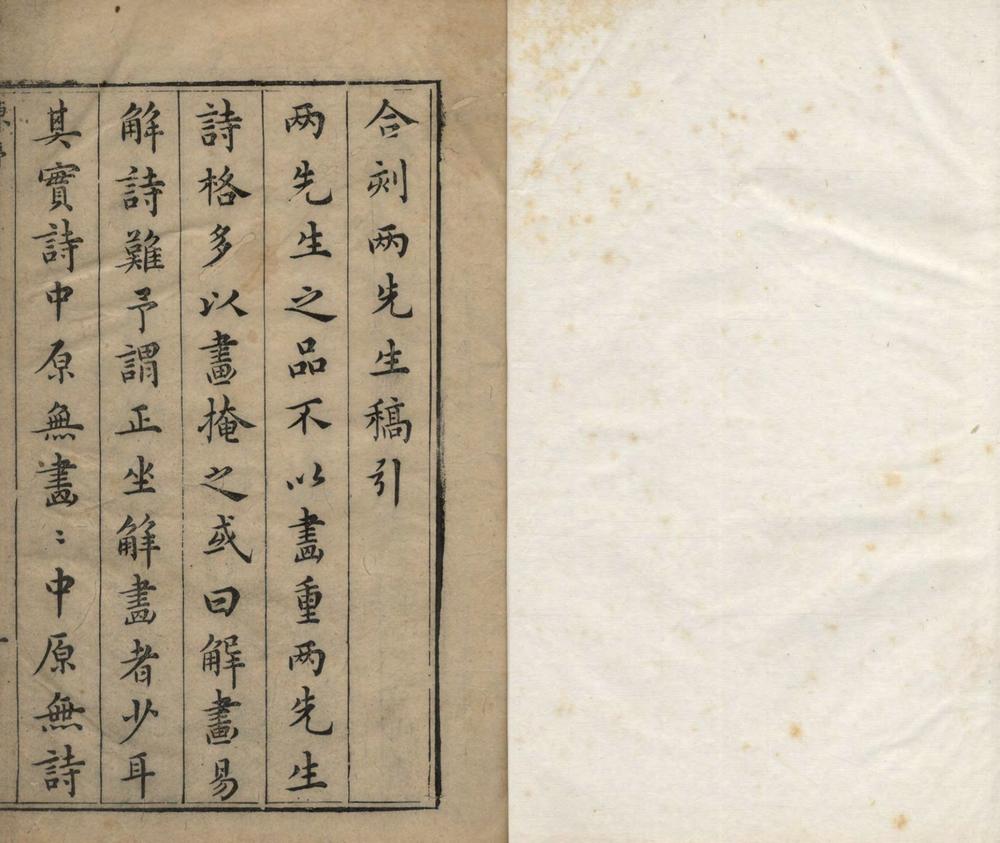 合刻两先生稿引
两先生之品不以畫重两先生
詩格多以畫掩之或曰解畫易
解詩難予謂正坐解畫者少耳
其實詩中原無畫〻中原無詩